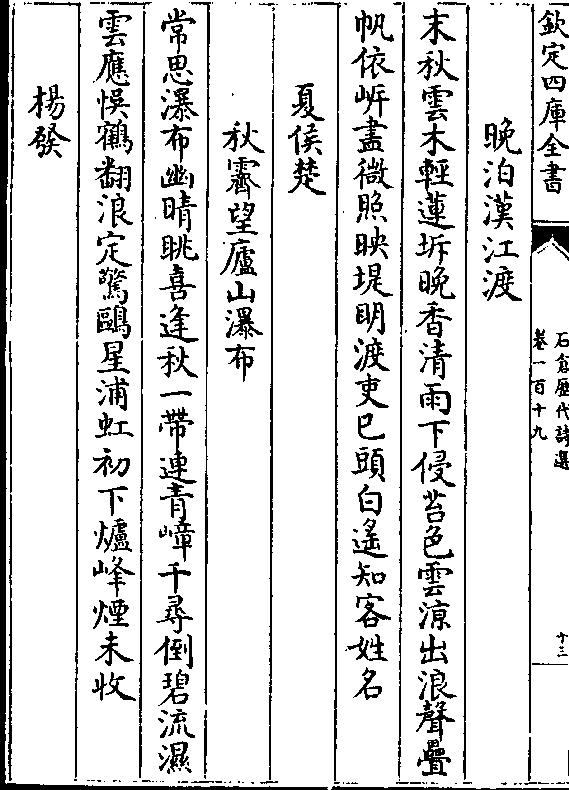 欽定四庫全書
石倉歷代詩選
卷一百十九
十三
晚泊漢江渡
末秋雲木輕蓮坼晚香清雨下侵苔色雲涼出浪聲疊
帆依㟁盡微照映堤明渡吏已頭白遙知客姓名
夏侯楚
秋霽望廬山瀑布
常思瀑布幽晴眺喜逢秋一帶連青嶂千尋倒碧流濕
雲應悞鶴翻浪定驚鷗星浦虹初下爐峰煙未收
楊發